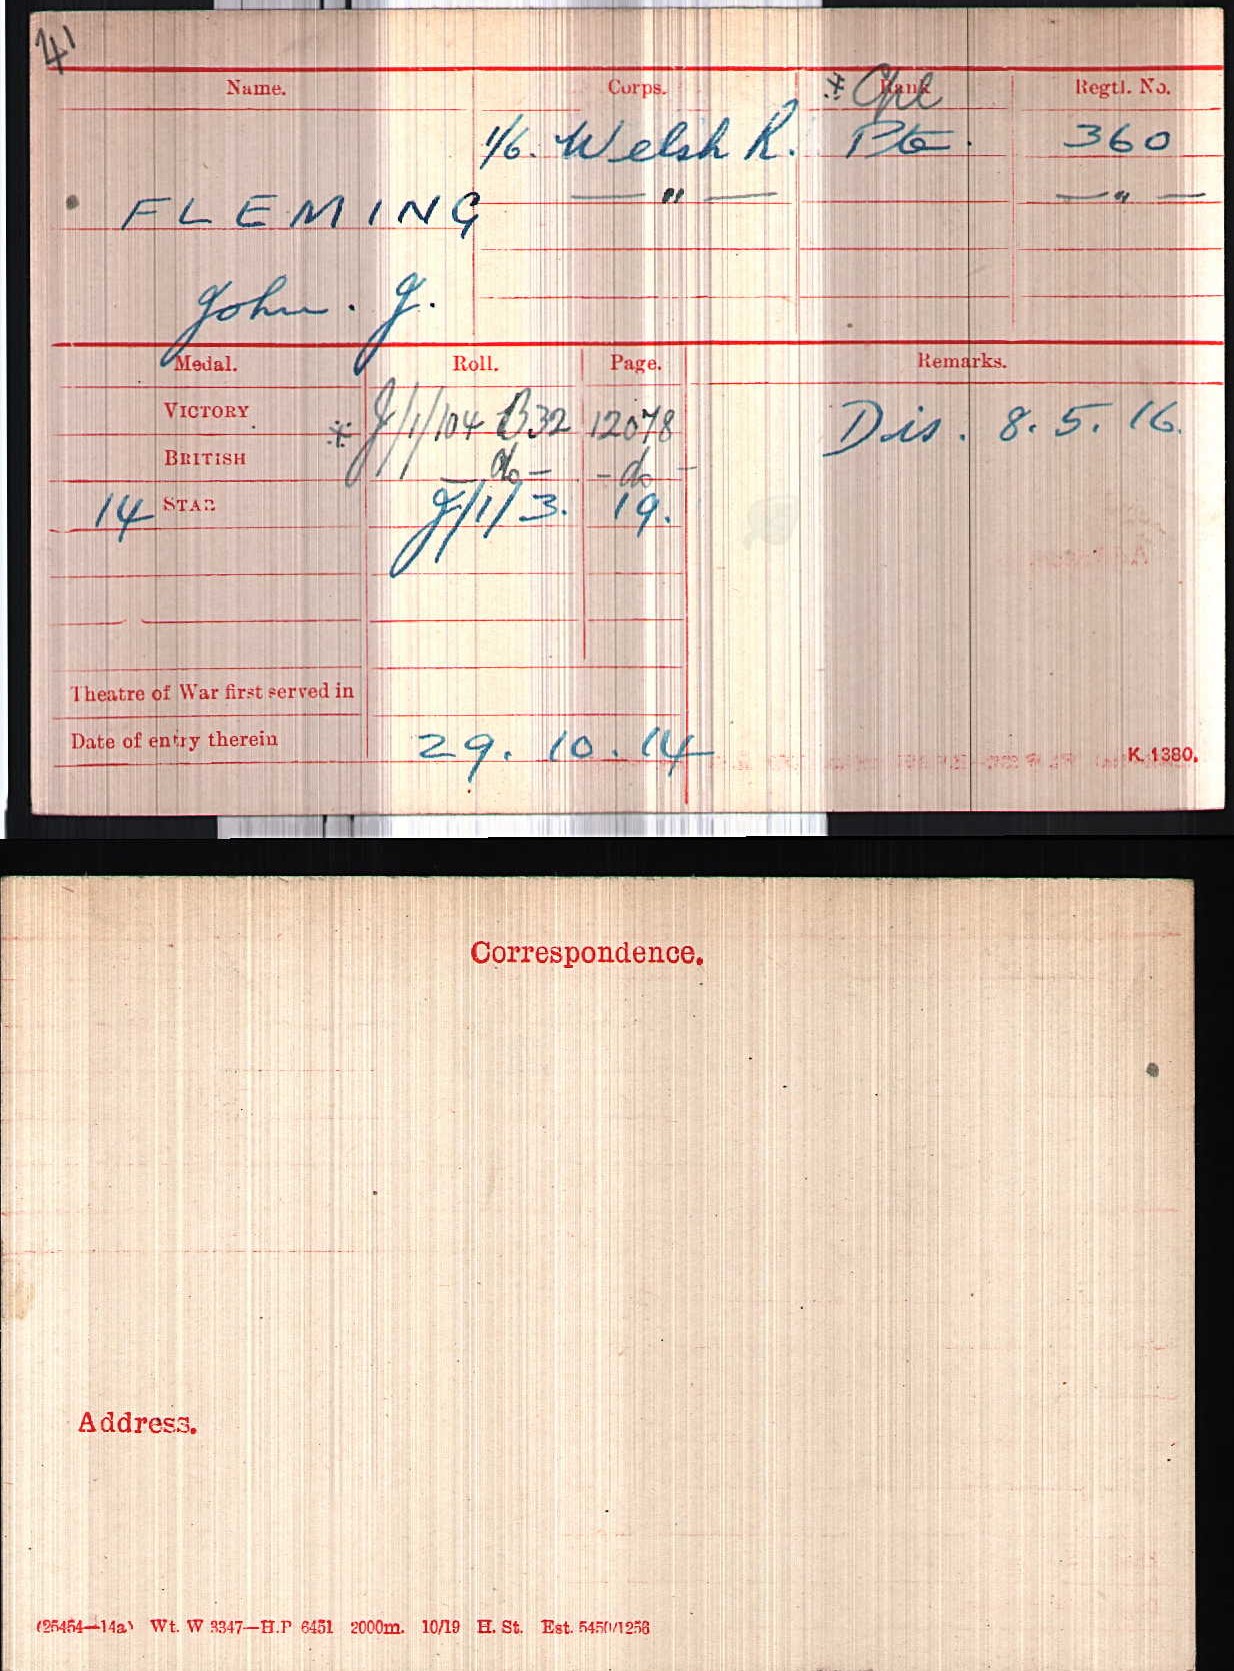 41
Name. Corps. Rank Regtl. No.
* Cpl
1/6. Welsh R. Pte. 360
FLEMING — " — — " —
John. J.
Medal. Roll. Page. Remarks.
VICTORY * J/1/104 B32 12078 Dis. 8.5.16.
BRITISH — do — - do -
14 STAR J/1/3. 19.
Theatre of War first served in
Date of entry therein 29.10.14
K. 1380.
Correspondence.
Address.
(25454—14a) Wt. W 3347—H.P 6451 2000m. 10/19 H. St. Est. 5450/1256